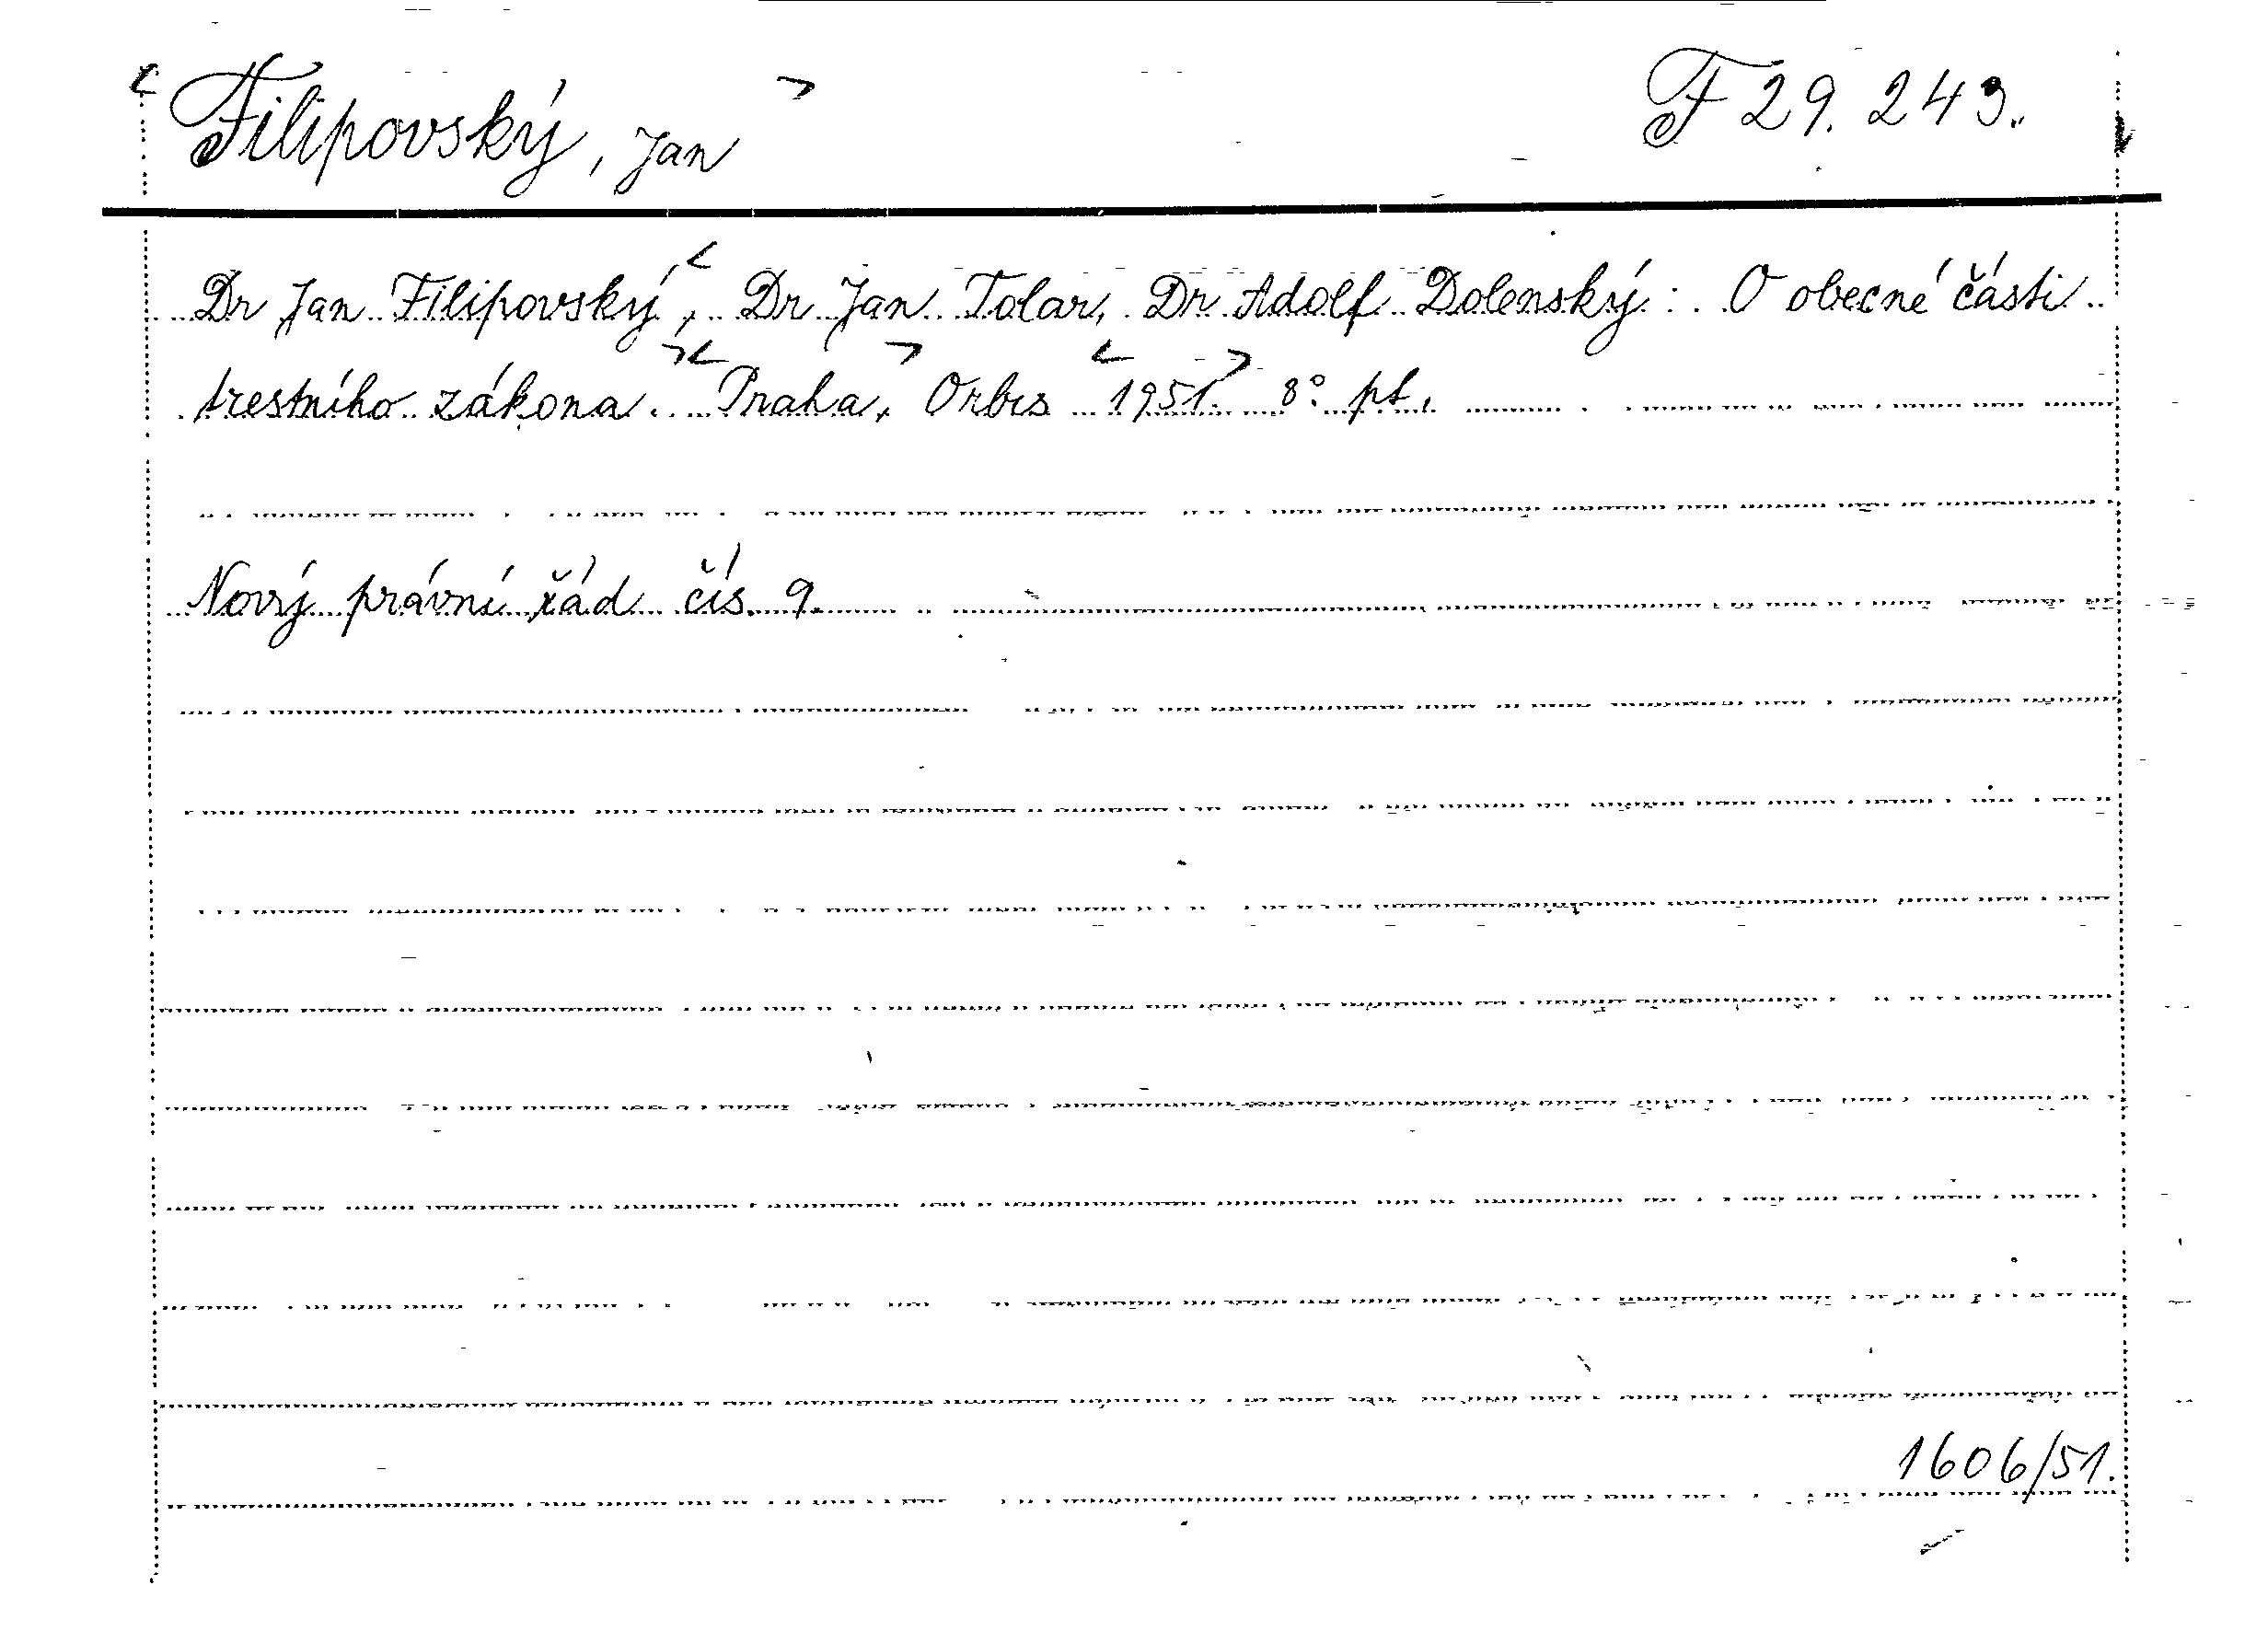 Filipovský, Jan F 29.243.
Dr Jan Filipovský, Dr Jan Tolar, Dr Adolf Dolenský: O obecné části
trestního zákona. Praha, Orbis 1951. 8° pt.
Nový právní řád čís. 9.
1606/51.